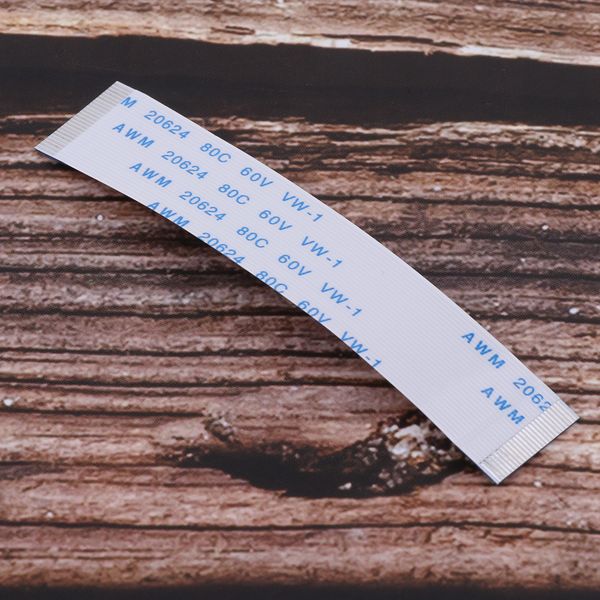 M 20624 80C 60V VW-1
AWM 20624 80C 60V VW-1
AWM 20624 80C 60V VW-1
AWM 20624 80C 60V VW-1
AWM 2062
AWM